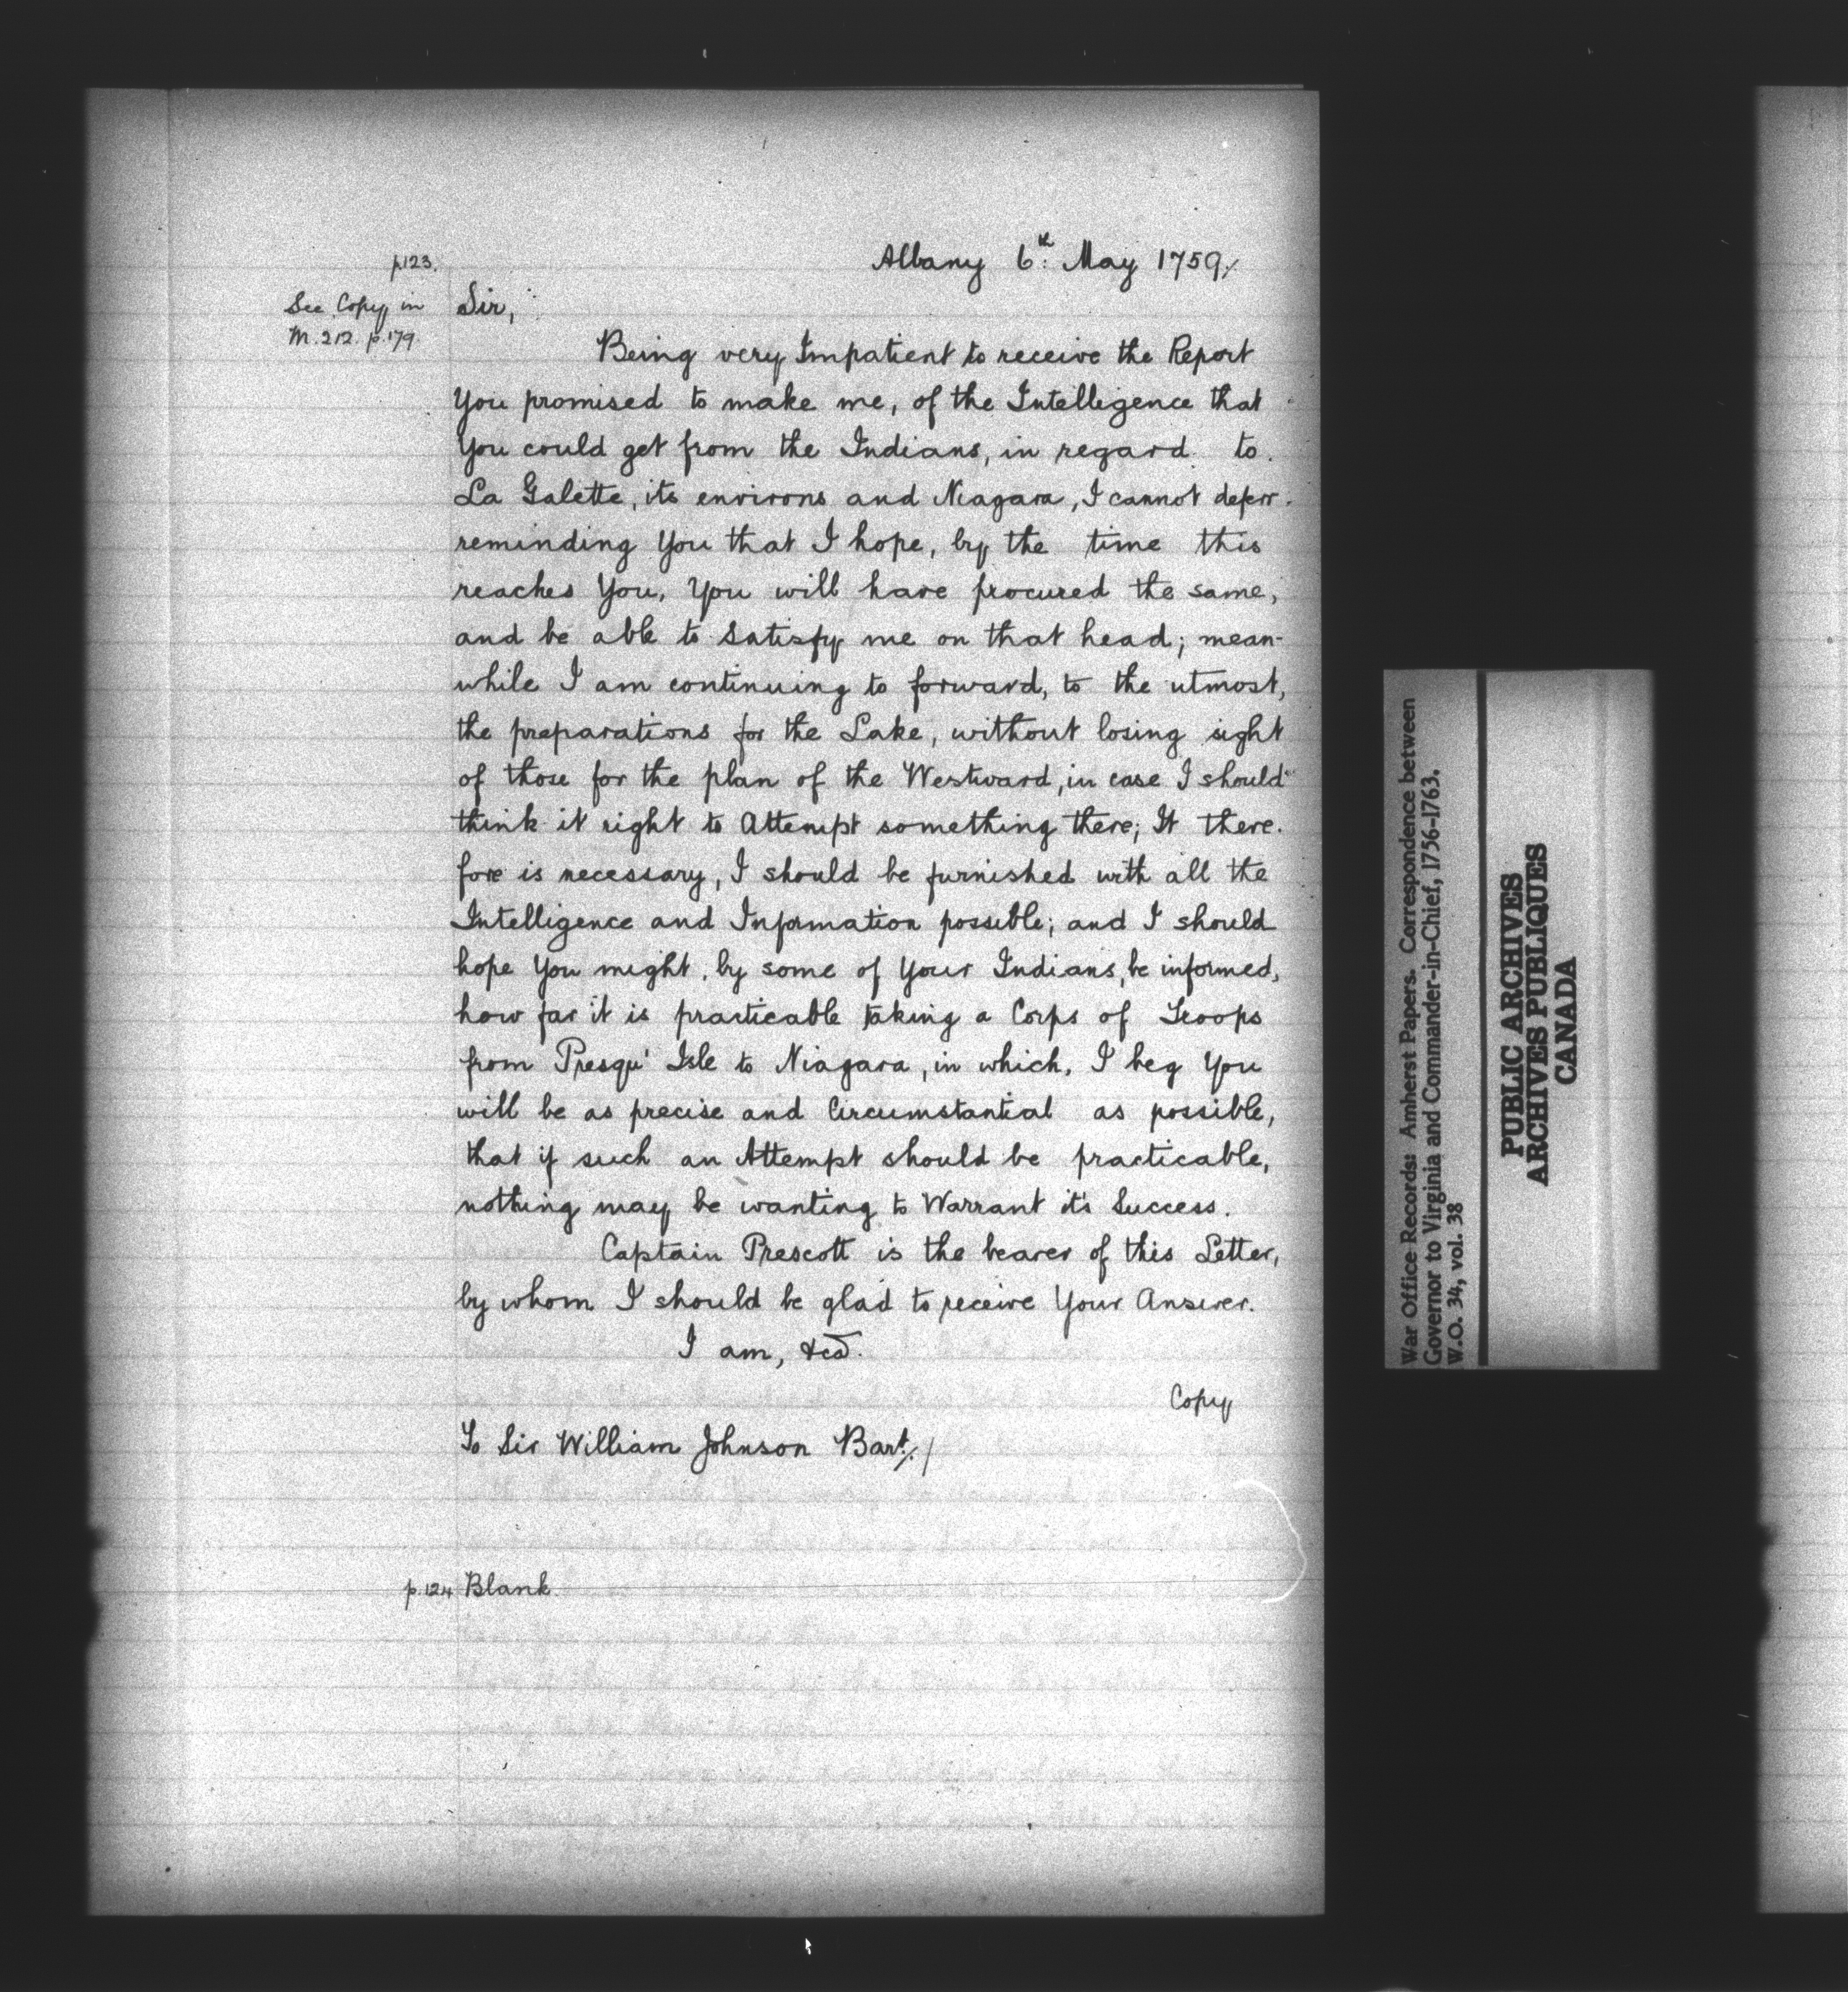 p.123.
Albany 6th: May 1759./
See Copy in
M. 212. p. 179.
Sir,
Being very Impatient to receive the Report
You promised to make me, of the Intelligence that
You could get from the Indians, in regard to
La Galette, its environs and Niagara, I cannot deferr
reminding You that I hope, by the time this
reaches You, You will have procured the same,
and be able to Satisfy me on that head; mean-
while I am continuing to forward, to the utmost,
the preparations for the Lake, without losing sight
of those for the plan of the Westward, in case I should
think it right to Attempt something there; It there-
fore is necessary, I should be furnished with all the
Intelligence and Information possible; and I should
hope You might, by some of Your Indians, be informed,
how far it is practicable taking a Corps of Troops
from Presqu' Isle to Niagara, in which, I beg You
will be as precise and Circumstantial as possible,
that if such an Attempt should be practicable,
nothing may be wanting to Warrant it's Success.
Captain Prescott is the bearer of this Letter,
by whom I should be glad to receive Your Answer.
I am, &ca.
Copy
To Sir William Johnson Bart./.
p.124 Blank.
War Office Records: Amherst Papers. Correspondence between
Governor to Virginia and Commander-in-Chief, 1756-1763.
W.O. 34, vol. 38
PUBLIC ARCHIVES
ARCHIVES PUBLIQUES
CANADA